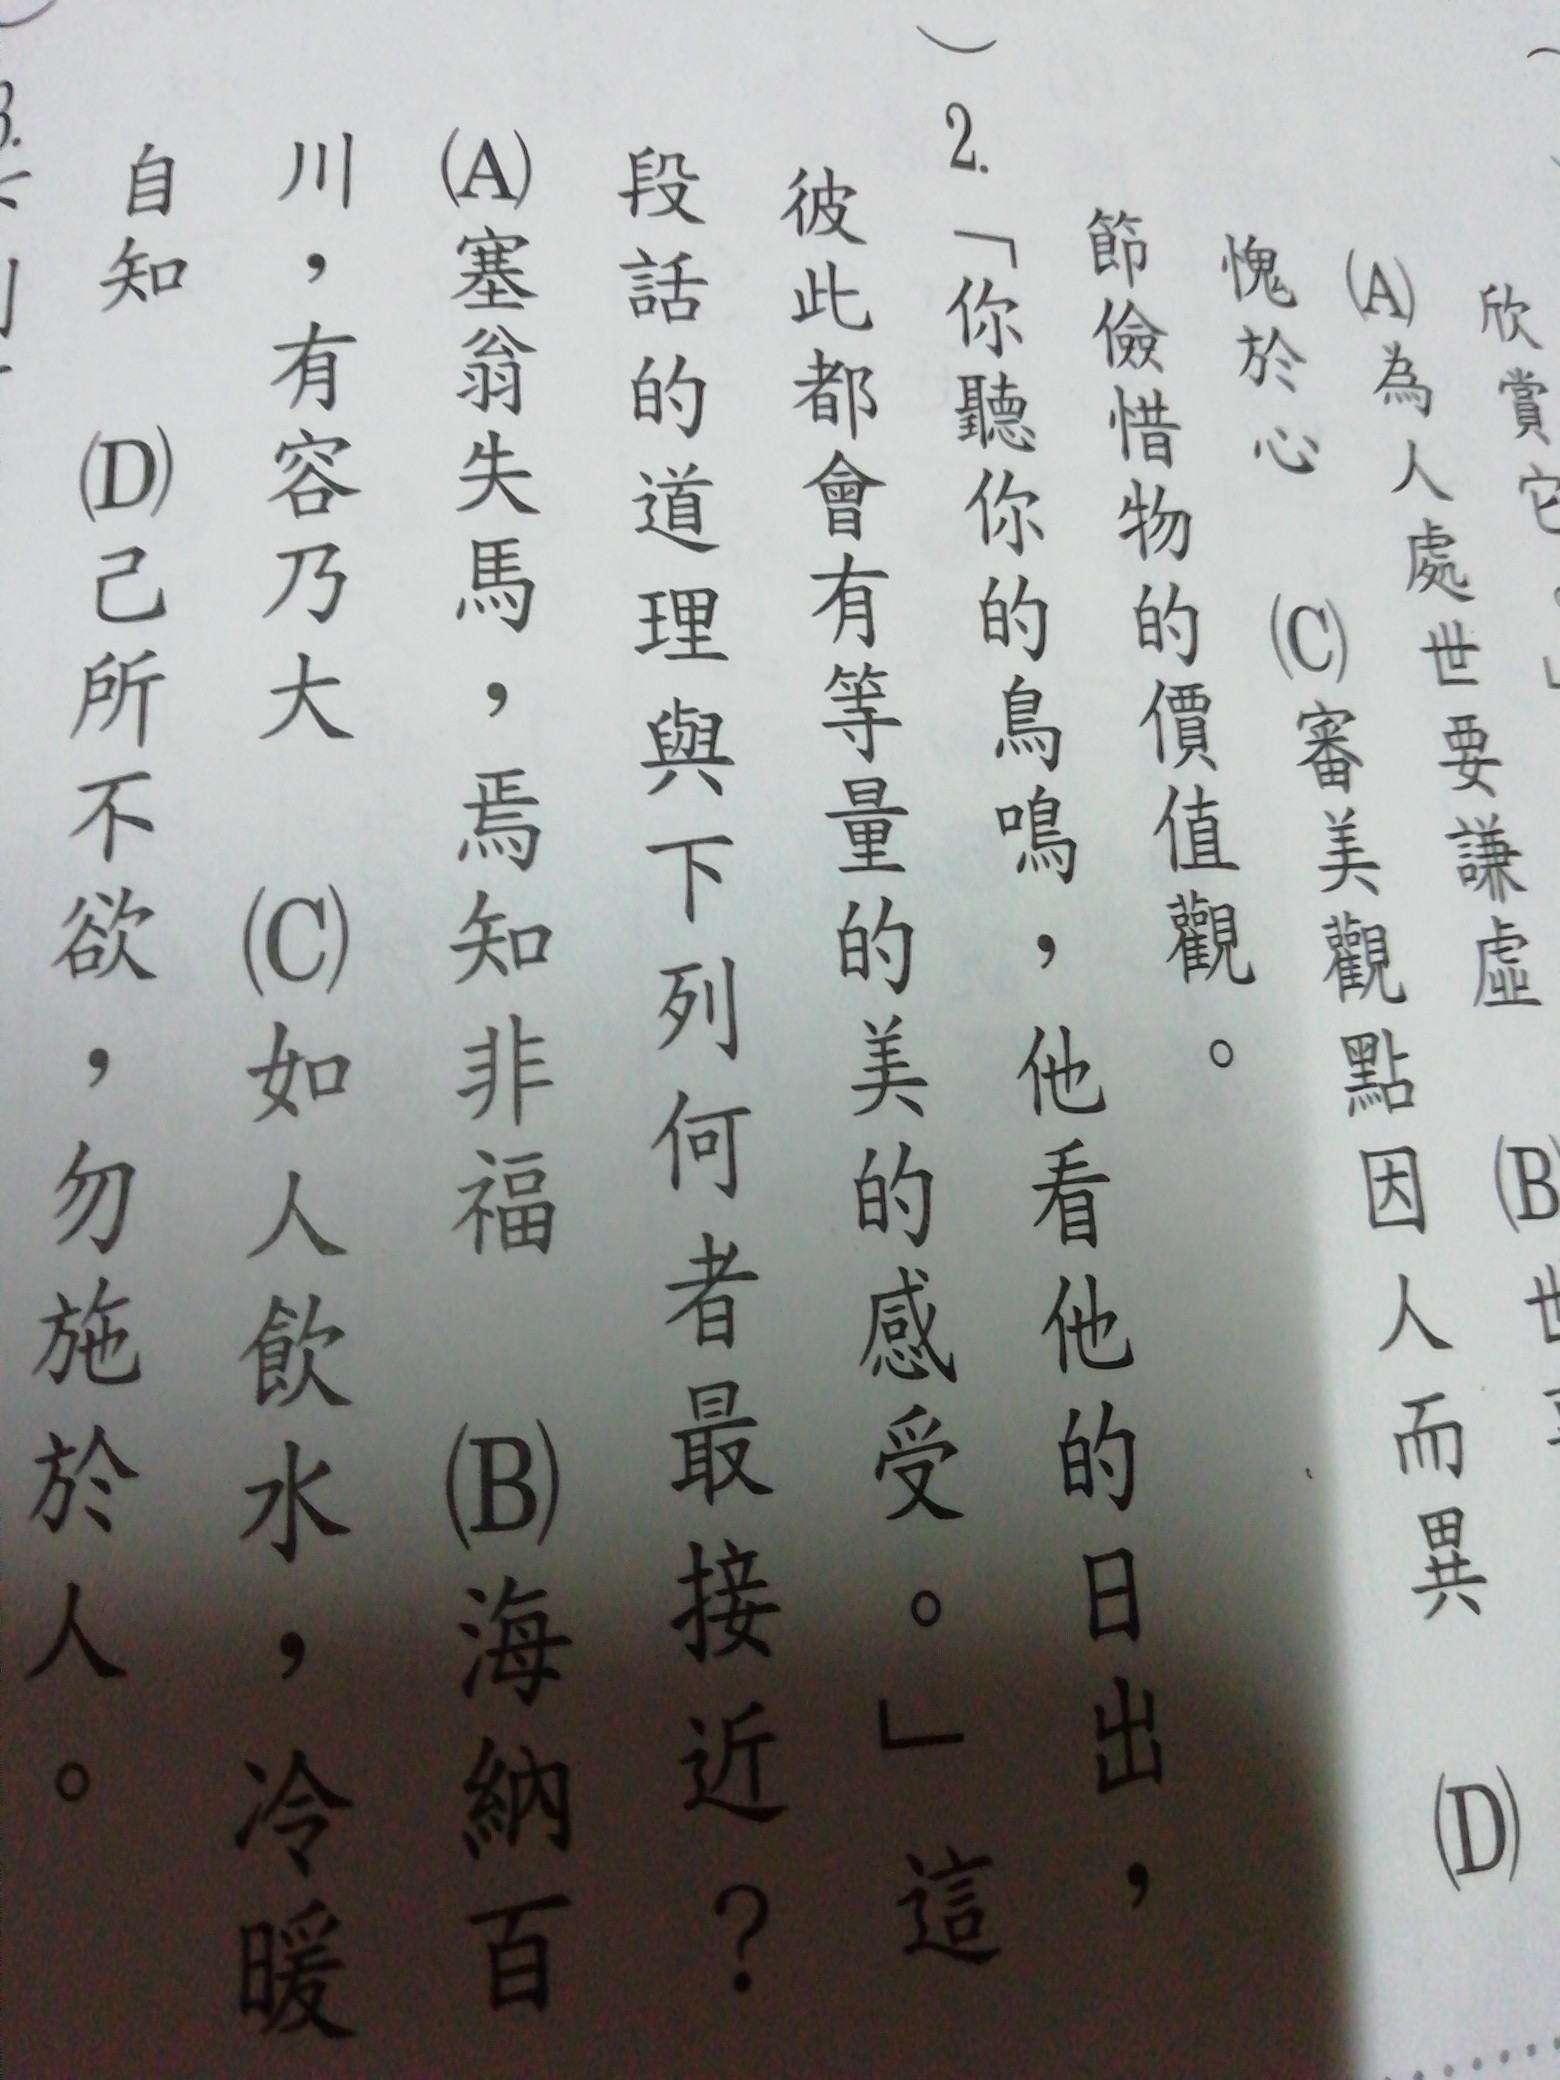 欣賞它。」
(A)為人處世要謙虛 (B)世
愧於心 (C)審美觀點因人而異 (D)
節儉惜物的價值觀。
2.「你聽你的鳥鳴，他看他的日出，
彼此都會有等量的美的感受。」這
段話的道理與下列何者最接近？
(A)塞翁失馬，焉知非福 (B)海納百
川，有容乃大 (C)如人飲水，冷暖
自知 (D)己所不欲，勿施於人。
3.